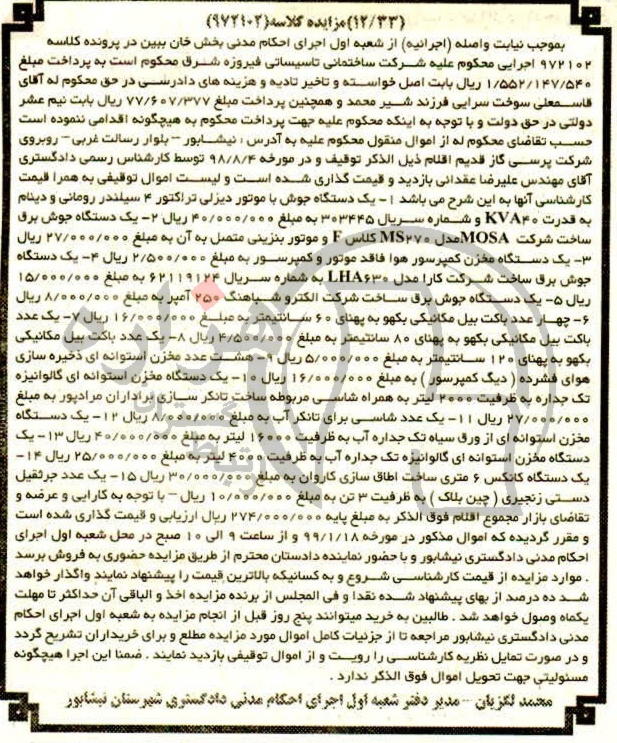 (۱۲/۳۳)مزایده کلاسه(۹۷۲۱۰۲)
بموجب نیابت واصله (اجرائیه) از شعبه اول اجرای احکام مدنی بخش خان ببین در پرونده کلاسه
۹۷۲۱۰۲ اجرایی محکوم علیه شرکت ساختمانی تاسیساتی فیروزه شرق محکوم است به پرداخت مبلغ
۱/۵۵۲/۱۴۷/۵۴۰ ریال بابت اصل خواسته و تاخیر تادیه و هزینه های دادرسی در حق محکوم له آقای
قاسمعلی سوخت سرایی فرزند شیر محمد و همچنین پرداخت مبلغ ۷۷/۶۰۷/۳۷۷ ریال بابت نیم عشر
دولتی در حق دولت و با توجه به اینکه محکوم علیه جهت پرداخت محکوم به هیچگونه اقدامی ننموده است
حسب تقاضای محکوم له از اموال منقول محکوم علیه به آدرس : نیشابور – بلوار رسالت غربی– روبروی
شرکت پرسی گاز قدیم اقلام ذیل الذکر توقیف و در مورخه ۹۸/۸/۴ توسط کارشناس رسمی دادگستری
آقای مهندس علیرضا عقدائی بازدید و قیمت گذاری شده است و لیست اموال توقیفی به همرا قیمت
کارشناسی آنها به این شرح می باشد ۱- یک دستگاه جوش با موتور دیزلی تراکتور ۴ سیلندر رومانی و دینام
به قدرت KVA۴۰ و شماره سریال ۳۰۳۴۴۵ به مبلغ ۴۰/۰۰۰/۰۰۰ ریال ۲- یک دستگاه جوش برق
ساخت شرکت MOSA مدل MS۲۷۰ کلاس F و موتور بنزینی متصل به آن به مبلغ ۲۷/۰۰۰/۰۰۰ ریال
۳- یک دستگاه مخزن کمپرسور هوا فاقد موتور و کمپرسور به مبلغ ۲/۵۰۰/۰۰۰ ریال ۴- یک دستگاه
جوش برق ساخت شرکت کارا مدل LHA۶۳۰ به شماره سریال ۶۲۱۱۹۱۲۴ به مبلغ ۱۵/۰۰۰/۰۰۰
ریال ۵- یک دستگاه جوش برق ساخت شرکت الکترو شباهنگ ۲۵۰ آمپر به مبلغ ۸/۰۰۰/۰۰۰ ریال
۶- چهار عدد باکت بیل مکانیکی بکهو به پهنای ۶۰ سانتیمتر به مبلغ ۱۶/۰۰۰/۰۰۰ ریال ۷- یک عدد
باکت بیل مکانیکی بکهو به پهنای ۸۰ سانتیمتر به مبلغ ۴/۵۰۰/۰۰۰ ریال ۸- یک عدد باکت بیل مکانیکی
بکهو به پهنای ۱۲۰ سانتیمتر به مبلغ ۵/۰۰۰/۰۰۰ ریال ۹- هشت عدد مخزن استوانه ای ذخیره سازی
هوای فشرده ( دیگ کمپرسور ) به مبلغ ۱۶/۰۰۰/۰۰۰ ریال ۱۰- یک دستگاه مخزن استوانه ای گالوانیزه
تک جداره به ظرفیت ۲۰۰۰ لیتر به همراه شاسی مربوطه ساخت تانکر سازی برادران مرادپور به مبلغ
۲۷/۰۰۰/۰۰۰ ریال ۱۱- یک عدد شاسی برای تانکر آب به مبلغ ۸/۰۰۰/۰۰۰ ریال ۱۲- یک دستگاه
مخزن استوانه ای از ورق سیاه تک جداره آب به ظرفیت ۱۶۰۰۰ لیتر به مبلغ ۴۰/۰۰۰/۰۰۰ ریال ۱۳- یک
دستگاه مخزن استوانه ای گالوانیزه تک جداره آب به ظرفیت ۴۰۰۰ لیتر به مبلغ ۲۵/۰۰۰/۰۰۰ ریال ۱۴-
یک دستگاه کانکس ۶ متری ساخت اطاق سازی کاروان به مبلغ ۳۰/۰۰۰/۰۰۰ ریال ۱۵- یک عدد جرثقیل
دستی زنجیری ( چین بلاک ) به ظرفیت ۳ تن به مبلغ ۱۰/۰۰۰/۰۰۰ ریال – با توجه به کارایی و عرضه و
تقاضای بازار مجموع اقلام فوق الذکر به مبلغ پایه ۲۷۴/۰۰۰/۰۰۰ ریال ارزیابی و قیمت گذاری شده است
و مقرر گردیده که اموال مذکور در مورخه ۹۹/۱/۱۸ و از ساعت ۹ الی ۱۰ صبح در محل شعبه اول اجرای
احکام مدنی دادگستری نیشابور و با حضور نماینده دادستان محترم از طریق مزایده حضوری به فروش برسد
. موارد مزایده از قیمت کارشناسی شروع و به کسانیکه بالاترین قیمت را پیشنهاد نمایند واگذار خواهد
شد ده درصد از بهای پیشنهاد شده نقدا و فی المجلس از برنده مزایده اخذ و الباقی آن حداکثر تا مهلت
یکماه وصول خواهد شد . طالبین به خرید میتوانند پنج روز قبل از انجام مزایده به شعبه اول اجرای احکام
مدنی دادگستری نیشابور مراجعه تا از جزئیات کامل اموال مورد مزایده مطلع و برای خریداران تشریح گردد
و در صورت تمایل نظریه کارشناسی را رویت و از اموال توقیفی بازدید نمایند . ضمنا این اجرا هیچگونه
مسئولیتی جهت تحویل اموال فوق الذکر ندارد .
محمد لگزیان – مدیر دفتر شعبه اول اجرای احکام مدنی دادگستری شهرستان نیشابور